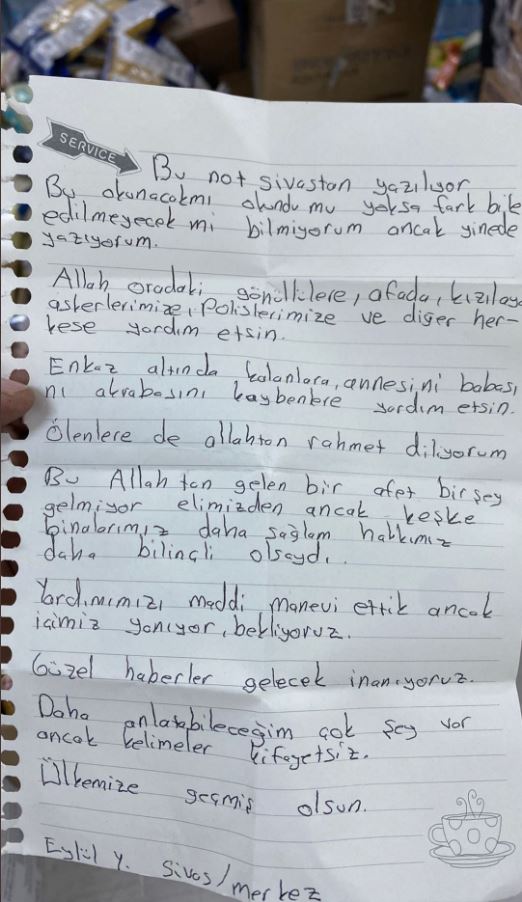 SERVICE
Bu not sivastan yazılıyor
Bu okunacakmı okundu mu yoksa fark bile
edilmeyecek mi bilmiyorum ancak yinede
yazıyorum.
Allah oradaki gönüllülere, afada, kızılaya
askerlerimize, polislerimize ve diger her-
kese yardım etsin.
Enkaz altında kalanlara, annesini babası
nı akrabasını kaybenlere yardım etsin.
Ölenlere de allahtan rahmet diliyorum
Bu Allah tan gelen bir afet birşey
gelmiyor elimizden ancak keşke
binalarımız daha sağlam halkımız
daha bilinçli olsaydı.
Yardımımızı maddi manevi ettik ancak
içimiz yanıyor, bekliyoruz.
Güzel haberler gelecek inanıyoruz.
Daha anlatabileceğim çok şey var
ancak kelimeler kifayetsiz.
Ülkemize geçmiş olsun.
Eylül Y. Sivas/merkez